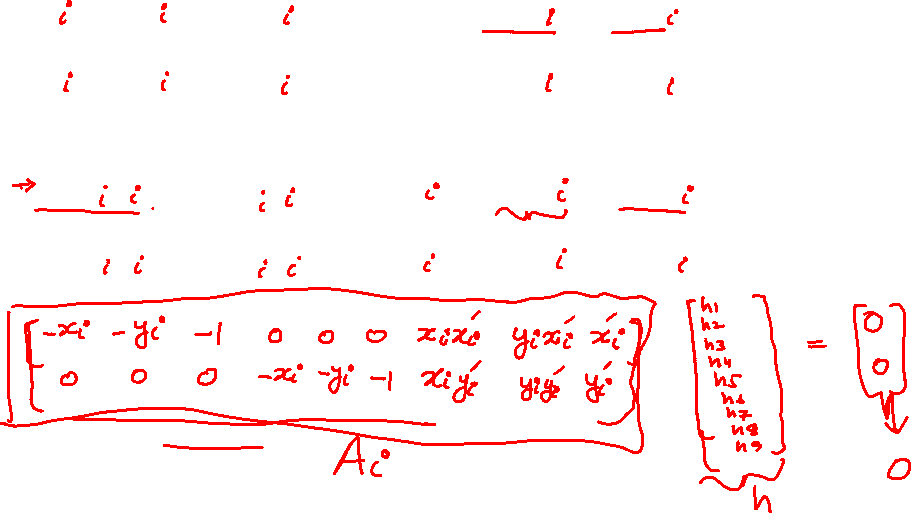 i i i i i
i i i i i
→ i i i i i i i
i i i i i i i
-xi -yi -1 0 0 0 xixi′ yixi′ xi′
0 0 0 -xi -yi -1 xiyi′ yiyi′ yi′
h1
h2
h3
h4
h5
h6
h7
h8
h9
= 0
0
Ai
h
0